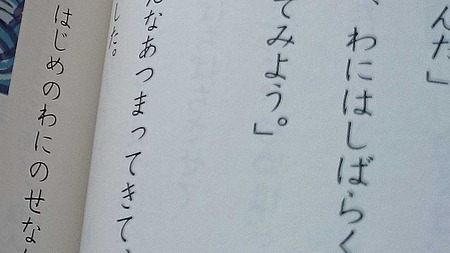 んだ」
、わにはしばらく
てみよう。」
んなあつまってきて、
した。
はじめのわにのせな